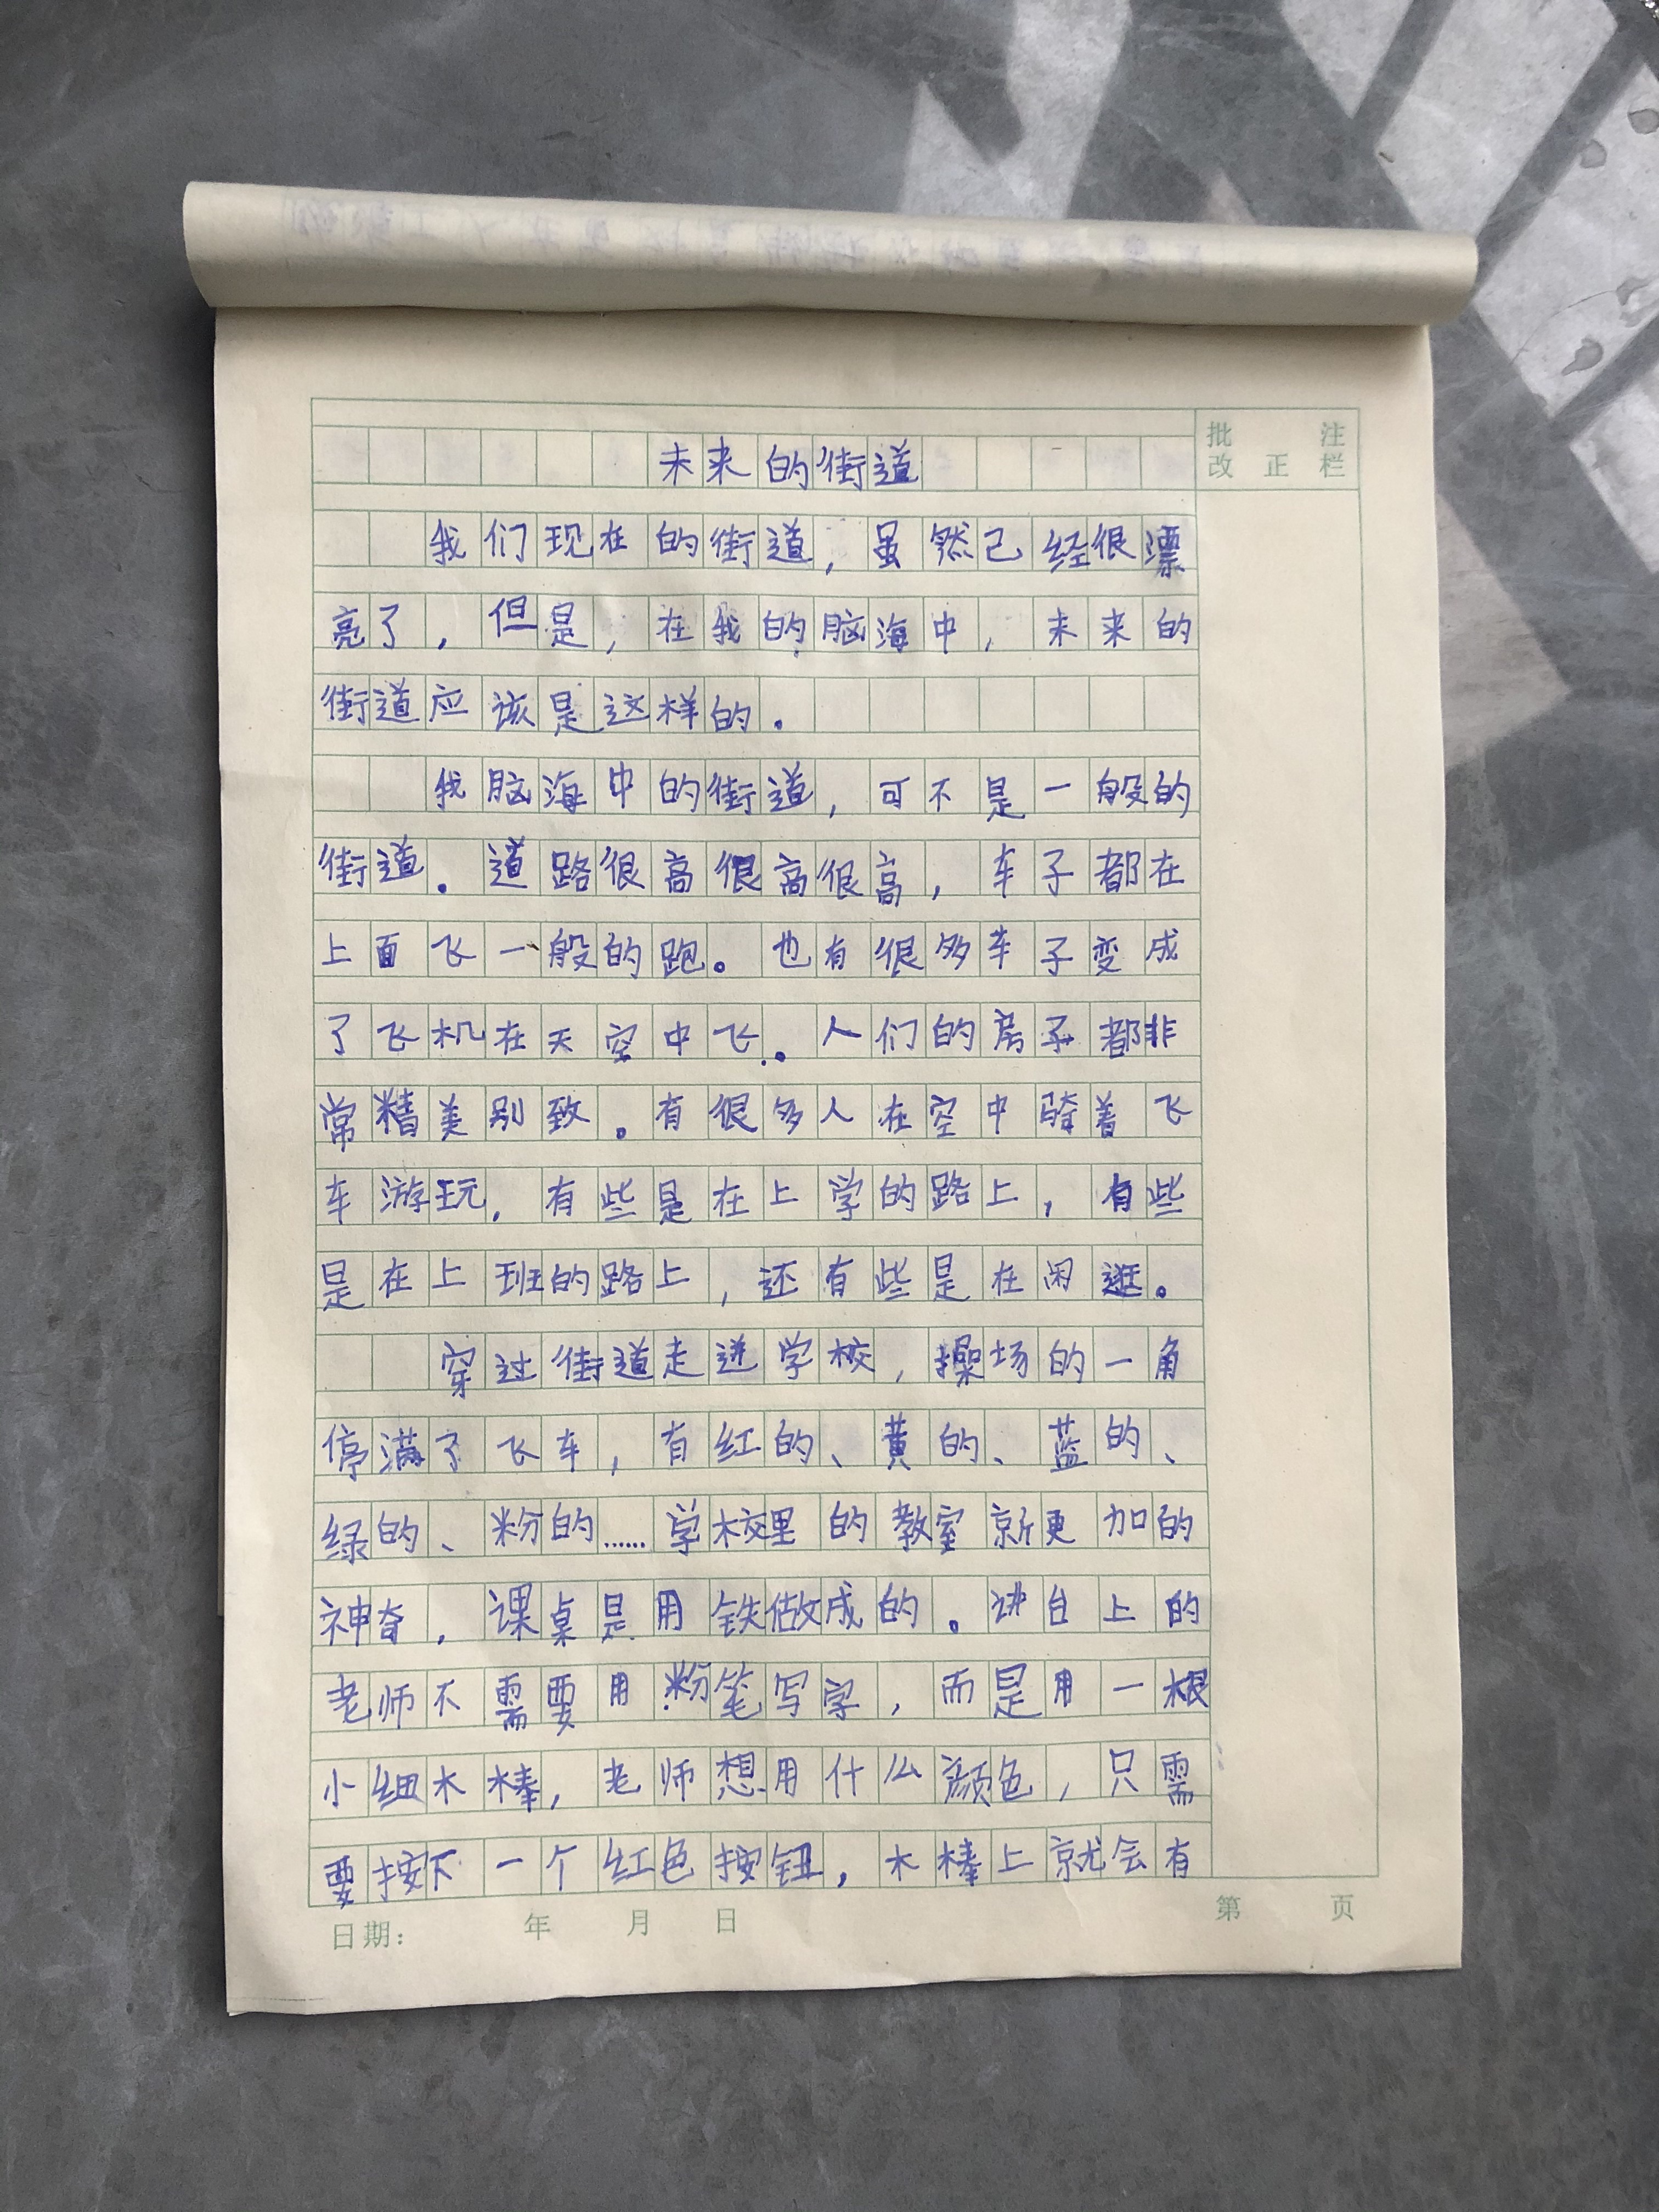 未来的街道
批注
改正栏
我们现在的街道，虽然已经很漂
亮了，但是，在我的脑海中，未来的
街道应该是这样的。
我脑海中的街道，可不是一般的
街道。道路很高很高很高，车子都在
上面飞一般的跑。也有很多车子变成
了飞机在天空中飞。人们的房子都非
常精美别致。有很多人在空中骑着飞
车游玩，有些是在上学的路上，有些
是在上班的路上，还有些是在闲逛。
穿过街道走进学校，操场的一角
停满了飞车，有红的、黄的、蓝的、
绿的、粉的……学校里的教室就更加的
神奇，课桌是用铁做成的。讲台上的
老师不需要用粉笔写字，而是用一根
小细木棒，老师想用什么颜色，只需
要按下一个红色按钮，木棒上就会有
日期： 年 月 日
第 页